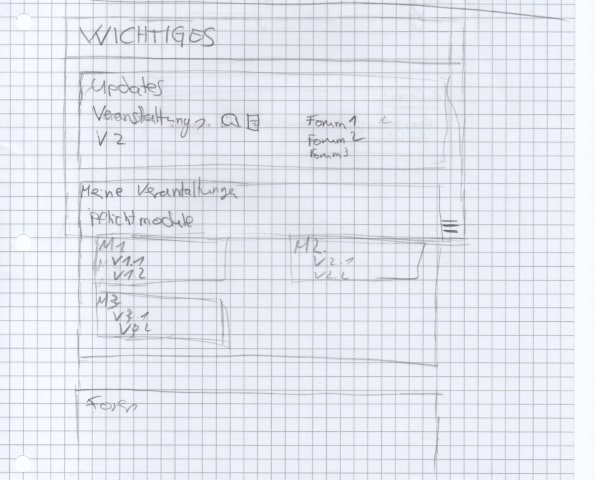 WICHTIGES
Updates
Veranstaltung 1.
V 2
Forum 1
Forum 2
Forum 3
Meine Verantaltunge
Pflichtmodule
M1
V1.1
V1.2
M2.
V2.1
V2.2
M3
V3.1
V3.2
Foren